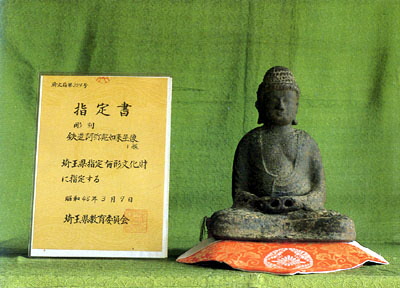 指定書
彫刻
鉄造阿弥陀如来坐像
埼玉県指定有形文化財
に指定する
昭和46年3月9日
埼玉県教育委員会